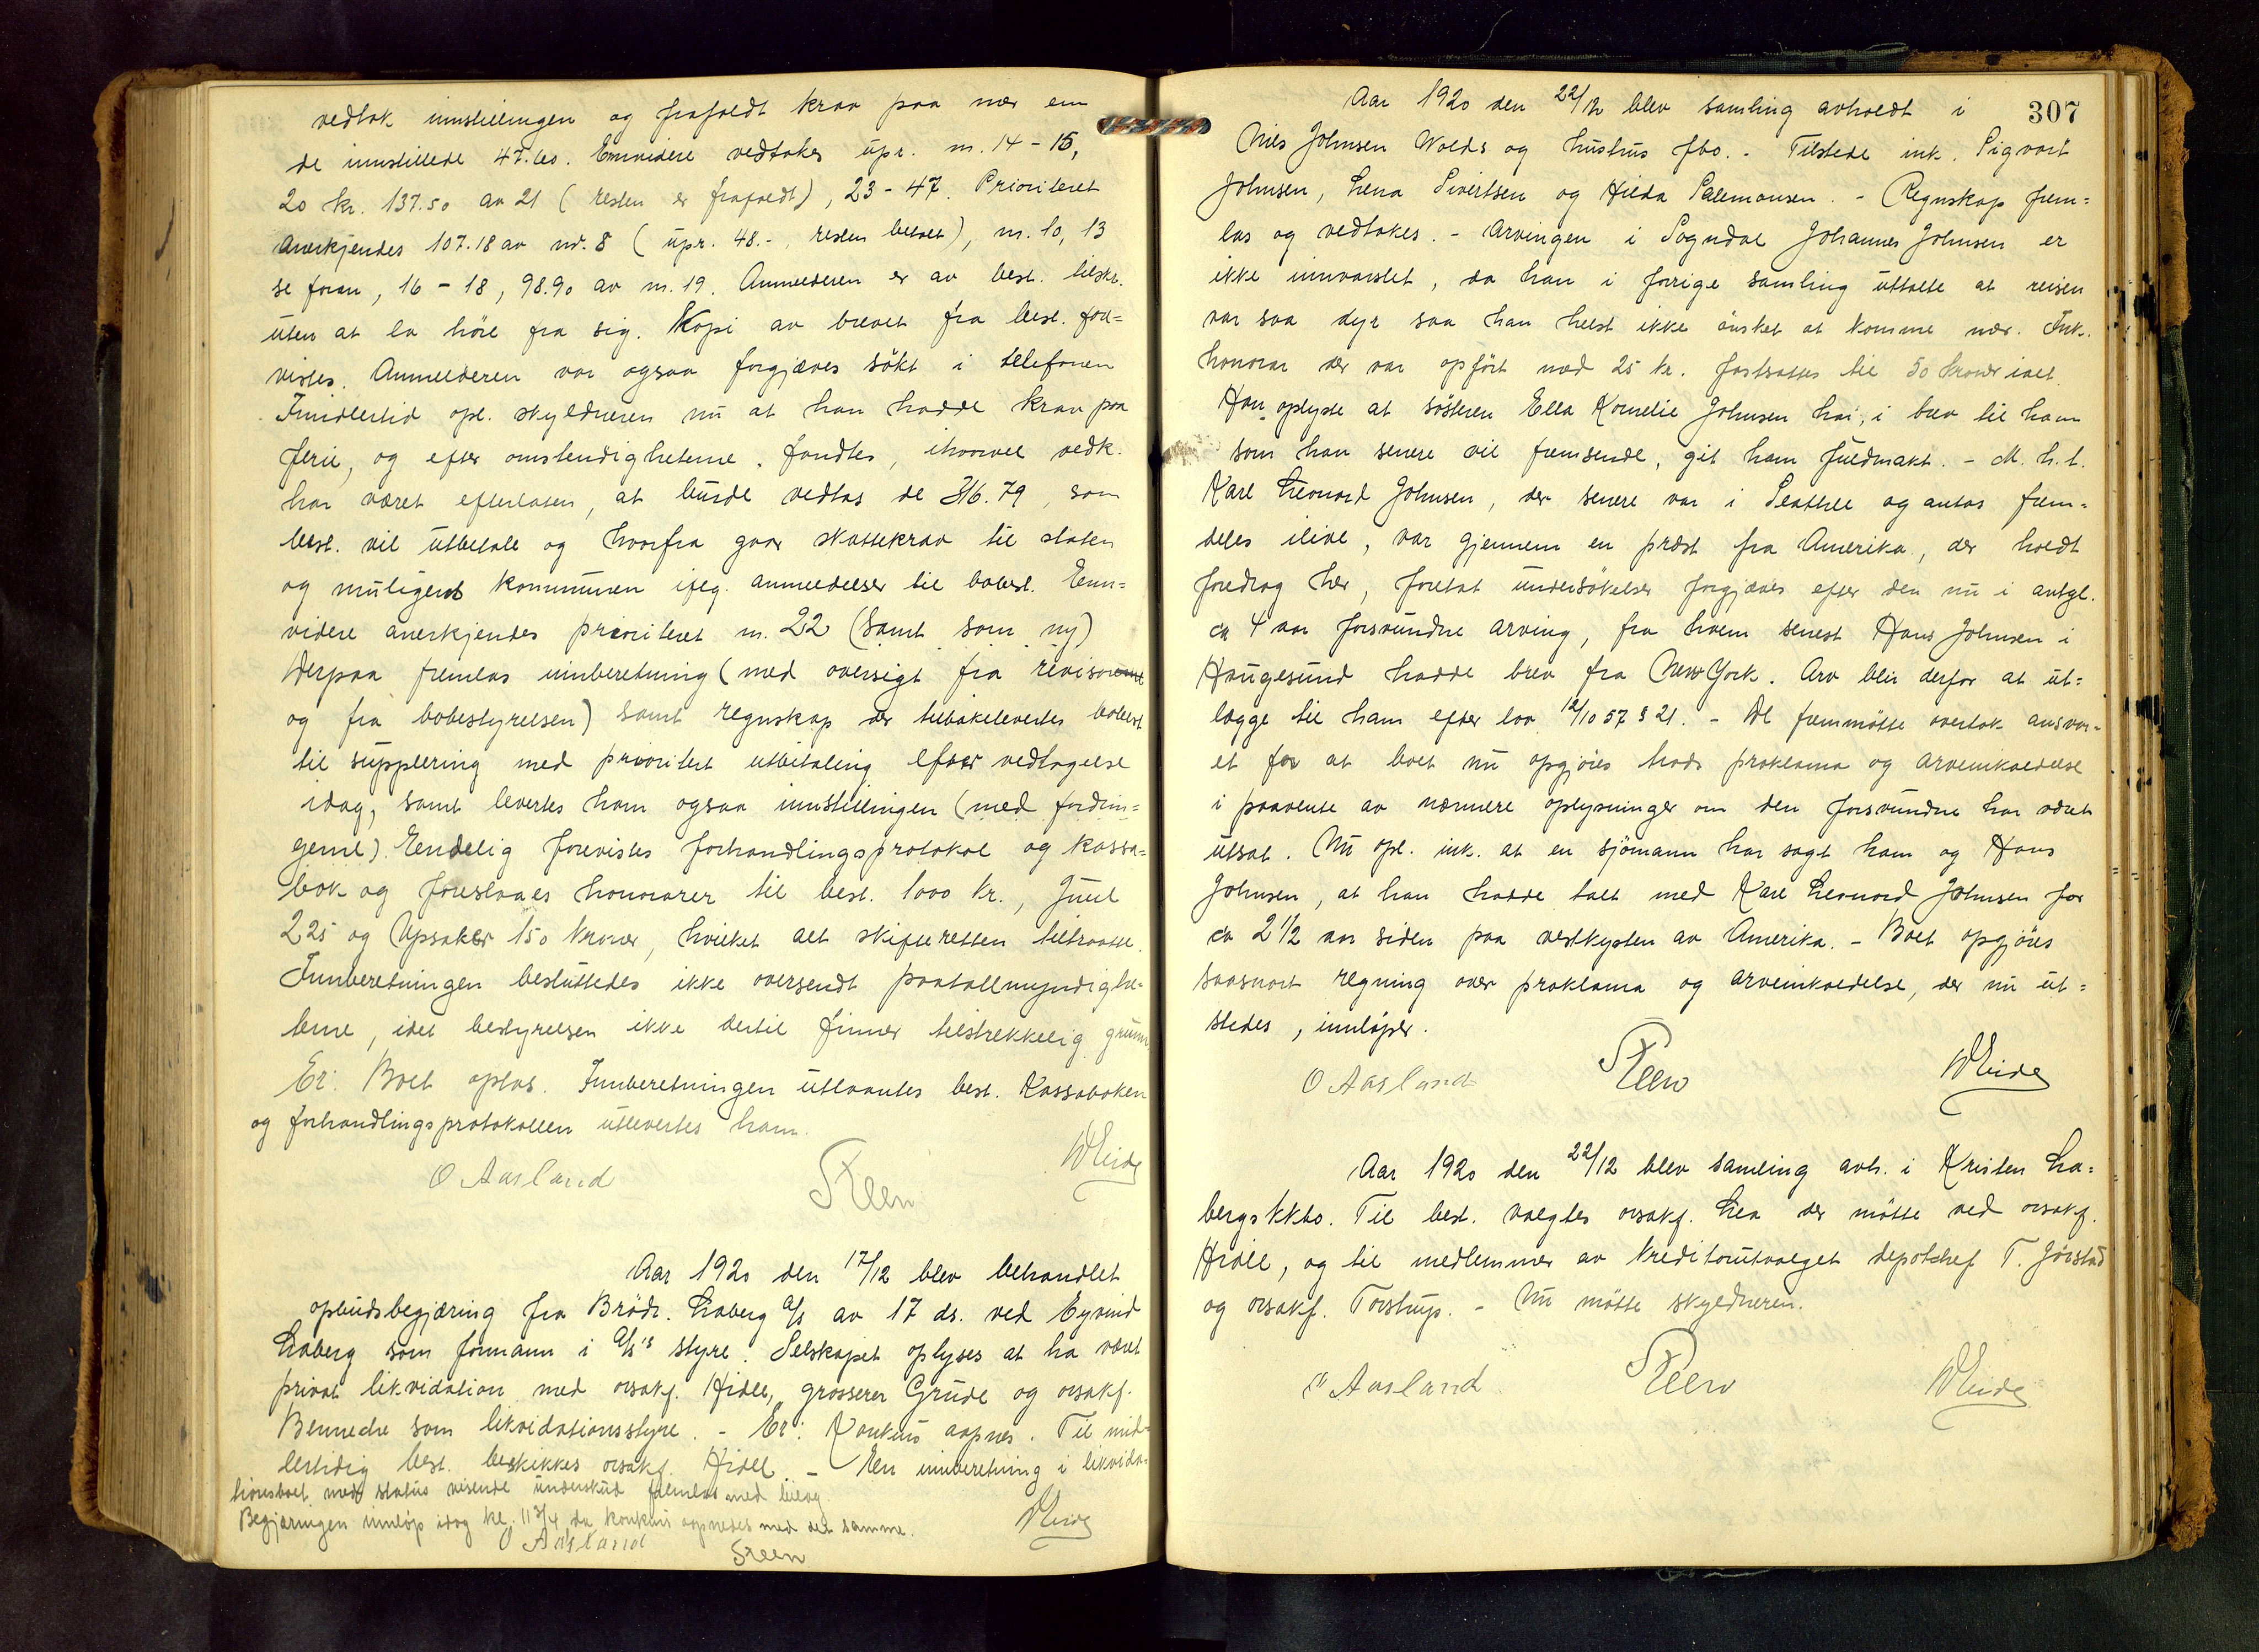 vedtok innstillingen og frafaldt krav paa mer enn
de innstillede 47.60. Ennvidere vedtokes upr. nr. 14 - 15,
20 kr. 137.50 av 21 (resten er frafaldt), 23 - 47. Prioriteret
anerkjendes 107.18 av nr. 8 (upr. 48.-, resten betalt), nr. 10, 13
se foran, 16 - 18, 98.90 av nr. 19. Anmelderen er av best. tilskr.
uten at la høre fra sig. Kopi av brevet fra best. fore=
vistes. Anmelderen var ogsaa forgjæves søkt i telefonen
Imidlertid opl. skyldneren nu at han hadde krav paa
ferie, og efter omstendighetene fandtes, ihvorvel vedk.
har været efterlaten, at burde vedtas de 316.79, som
best. vil utbetale og hvorfra gaar skattekrav til staten
og muligens kommunen ifølg. anmeldelser til bobest. Enn=
videre anerkjendes prioriteret nr. 22 (samt som ny)
Derpaa fremlas innberetning (med oversigt fra revisor
og fra bobestyrelsen) samt regnskap der tilbakelevertes bobest.
til supplering med prioritert utbetaling efter vedtagelse
idag, samt levertes ham ogsaa innstillingen (med fordrin=
gerne). Endelig forevistes forhandlingsprotokol og kassa=
bok og foreslaaes honorarer til best. 1000 kr., Juul
225 og Upsaker 150 kroner, hvilket alt skifteretten tiltraatte.
Innberetningen besluttedes ikke oversendt paatalemyndighe=
terne, idet bestyrelsen ikke dertil finner tilstrekkelig grunn
Er: Boet optas. Innberetningen utlaantes best. Kassaboken
og forhandlingsprotokollen utlevertes ham.
O Aasland Steen WEide
Aar 1920 den 17/12 blev behandlet
opbudsbegjæring fra Brødr. Laberg A/S av 17 ds. ved Eyvind
Laberg som formann i A/S's styre. Selskapet oplyses at ha været
privat likvidation med orsakf. Hidle, grosserer Grude og orsakf.
Bennetche som likvidationsstyre. - Er: Konkurs aapnes. Til mid=
lertidig best. beskikkes orsakf. Hidle. - En innberetning i likvida=
tionsboet med status visende underskud fremlas med bilag.
Begjæringen innløp idag kl. 11 3/4 da konkurs aapnedes med det samme.
O Aasland Steen WEide
307
Aar 1920 den 22/12 blev samling avholdt i
Nils Johnsen Wolds og hustrus fbo. - Tilstede ink. Sigvart
Johnsen, Lena Sivertsen og Hilda Salemonsen. - Regnskap frem=
las og vedtokes. - Arvingen i Sogndal Johannes Johnsen er
ikke innvarslet, da han i forrige samling uttalte at reisen
var saa dyr saa han helst ikke ønsket at komme mer. Ink.
honorar der var opført med 25 kr. fastsattes til 50 kroner ialt.
Han oplyste at søsteren Ella Kornelie Johnsen har, i brev til ham
som han senere vil fremsende, git ham fuldmakt. - M. h. t.
Karl Leonard Johnsen, der senere var i Seattle og antas frem=
deles ilive, var gjennem en prest fra Amerika, der holdt
foredrag her, foretat undersøkelser forgjæves efter den nu i antgl.
ca 4 aar forsvundne arving, fra hvem senest Hans Johnsen i
Haugesund hadde brev fra New York. Arv blir derfor at ut=
lægge til ham efter lov 12/10 57 § 21. - De fremmøtte overtok ansvar=
et for at boet nu opgjøres trods proklama og arveinkaldelse
i paavente av nærmere oplysninger om den forsvundne har været
utsat. Nu opl. ink. at en sjømann har sagt ham og Hans
Johnsen, at han hadde talt med Karl Leonard Johnsen for
ca 2 1/2 aar siden paa vestkysten av Amerika. - Boet opgjøres
saasnart regning over proklama og arveinkaldelse, der nu ut=
stedes, innløper.
O Aasland Steen WEide
Aar 1920 den 22/12 blev samling avh. i Kristen La=
bergs kkbo. Til best. valgtes orsakf. Lea der møtte ved orsakf.
Hidle, og til medlemmer av kreditorutvalget depotchef T. Jørstad
og orsakf. Torstrup. - Nu møtte skyldneren.
O Aasland Steen WEide